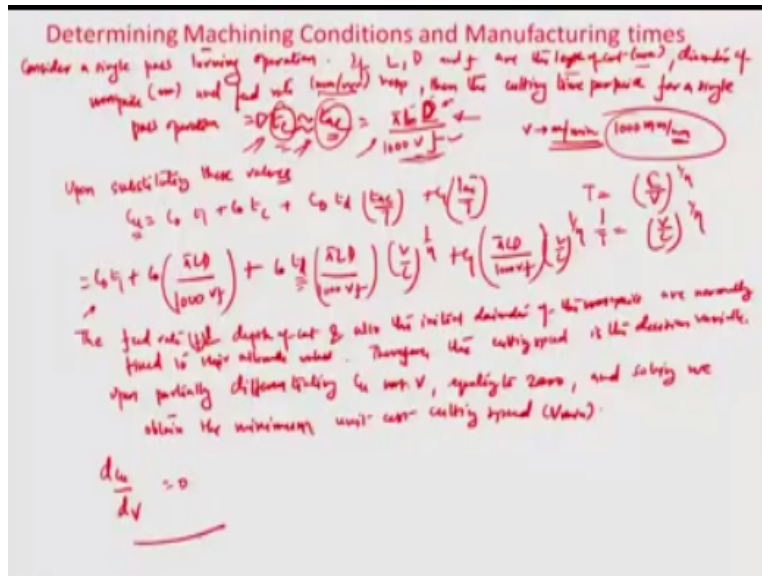 Determining Machining Conditions and Manufacturing times
Consider a single pass turning operation. If L, D and f are the length of cut (mm), diameter of
workpiece (mm) and feed rate (mm/rev) resp, then the cutting time per piece for a single
pass operation = D t_c ≈ t_ac = πLD / 1000 v f    V → m/min 1000 mm/min
Upon substituting these values
C_u = C_0 t_l + C_0 t_c + C_0 t_d (t_ac/T) + C_t (t_ac/T)    T = (C/V)^1/n
= C_0 t_l + C_0 (πLD / 1000 vf) + C_0 t_d (πLD / 1000 vf) (V/C)^1/n + C_t (πLD / 1000 vf) (V/C)^1/n    1/T = (V/C)^1/n
The feed rate depth of cut & also the initial diameter of the workpiece are normally
fixed to their allowable value. Therefore, the cutting speed is the decision variable.
Upon partially differentiating C_u w.r.t. V, equating to zero, and solving we
obtain the minimum unit cost cutting speed (Vmin).
dC_u / dV = 0